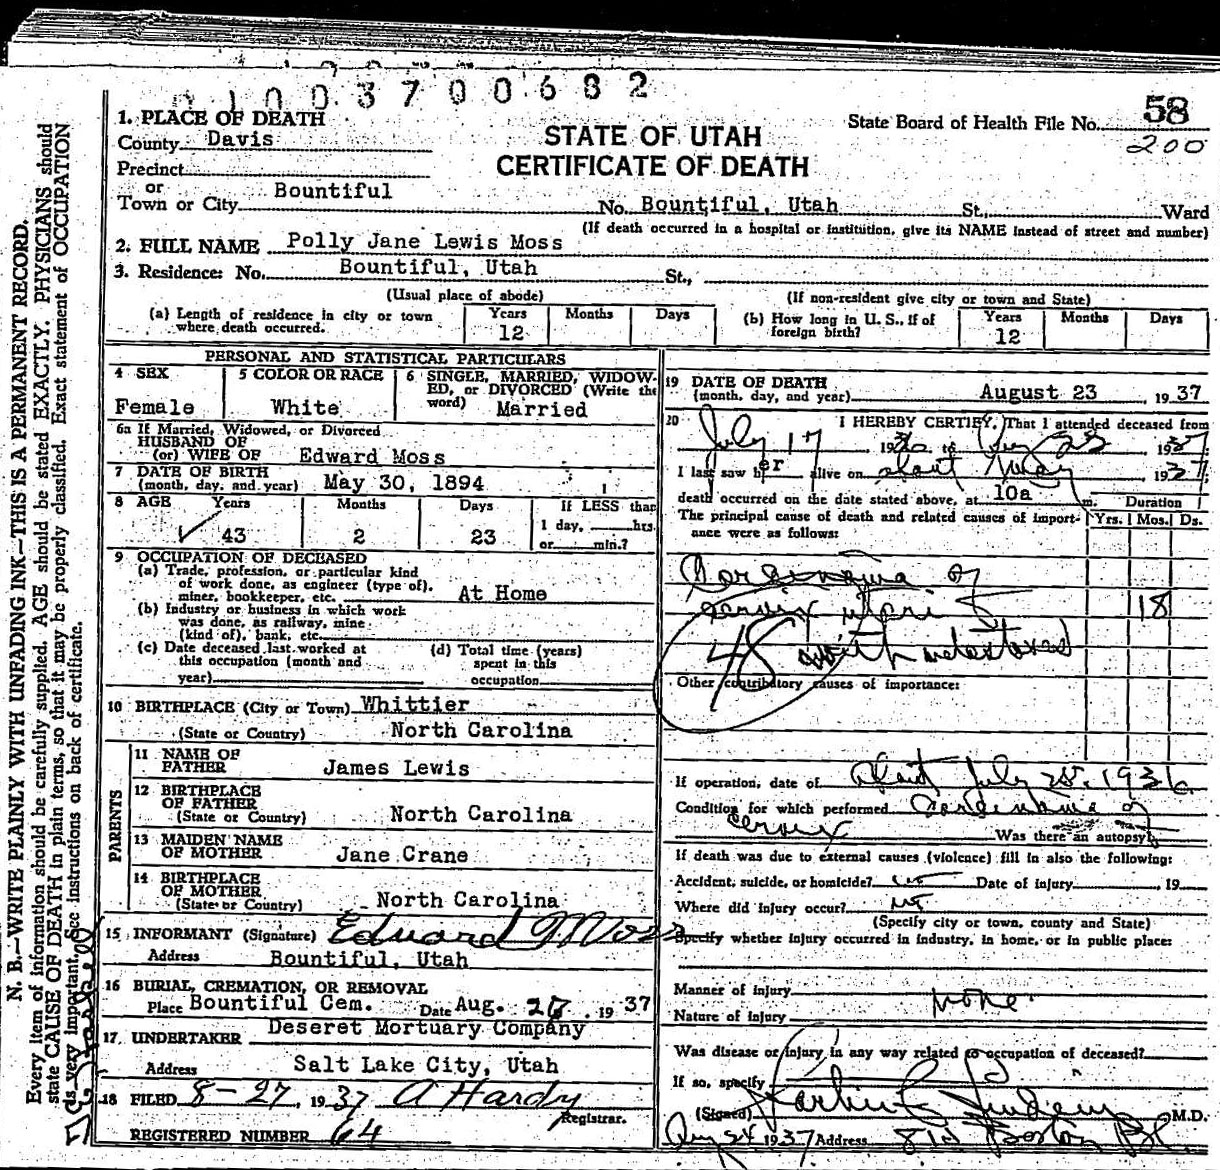 1003700682
58
200
1. PLACE OF DEATH
County Davis
STATE OF UTAH
CERTIFICATE OF DEATH
State Board of Health File No.
Precinct
or
Town or City Bountiful
No. Bountiful, Utah St., Ward
(If death occurred in a hospital or institution, give its NAME instead of street and number)
2. FULL NAME Polly Jane Lewis Moss
3. Residence: No. Bountiful, Utah St.,
(Usual place of abode)
(If non-resident give city or town and State)
(a) Length of residence in city or town where death occurred. Years 12 Months Days
(b) How long in U. S., if of foreign birth? Years 12 Months Days
PERSONAL AND STATISTICAL PARTICULARS
4 SEX Female
5 COLOR OR RACE White
6 SINGLE, MARRIED, WIDOWED, or DIVORCED (Write the word) Married
6a If Married, Widowed, or Divorced
HUSBAND OF
(or) WIFE OF Edward Moss
7 DATE OF BIRTH
(month, day, and year) May 30, 1894
8 AGE Years Months Days If LESS than
43 2 23 1 day, hrs.
or min.?
9 OCCUPATION OF DECEASED
(a) Trade, profession, or particular kind
of work done, as engineer (type of),
miner, bookkeeper, etc. At Home
(b) Industry or business in which work
was done, as railway, mine
(kind of), bank, etc.
(c) Date deceased last worked at
this occupation (month and
year)
(d) Total time (years)
spent in this
occupation
10 BIRTHPLACE (City or Town) Whittier
(State or Country) North Carolina
PARENTS
11 NAME OF
FATHER James Lewis
12 BIRTHPLACE
OF FATHER
(State or Country) North Carolina
13 MAIDEN NAME
OF MOTHER Jane Crane
14 BIRTHPLACE
OF MOTHER
(State or Country) North Carolina
15 INFORMANT (Signature) Edward Moss
Address Bountiful, Utah
16 BURIAL, CREMATION, OR REMOVAL
Place Bountiful Cem. Date Aug. 1937
17 UNDERTAKER Deseret Mortuary Company
Address Salt Lake City, Utah
18 FILED 8-27, 1937 A Hardy
Registrar.
REGISTERED NUMBER 64
19 DATE OF DEATH
(month, day, and year) August 23, 1937
20 I HEREBY CERTIFY, That I attended deceased from
July 17 1936 to Aug 23 1937
I last saw her alive on about 1937
death occurred on the date stated above, at 10a m.
Duration
The principal cause of death and related causes of importance were as follows: Yrs. Mos. Ds.
Carcinoma of
cervix uteri 18
48 with
Other contributory causes of importance:
If operation, date of About July 28, 1936
Condition for which performed Carcinoma of
cervix Was there an autopsy
If death was due to external causes (violence) fill in also the following:
Accident, suicide, or homicide? Date of injury , 19
Where did injury occur?
(Specify city or town, county and State)
Specify whether injury occurred in industry, in home, or in public place:
Manner of injury
Nature of injury none
Was disease or injury in any way related to occupation of deceased?
If so, specify
(Signed) M.D.
Aug 24 1937 Address
N. B.—WRITE PLAINLY WITH UNFADING INK—THIS IS A PERMANENT RECORD.
Every item of information should be carefully supplied. AGE should be stated EXACTLY. PHYSICIANS should
state CAUSE OF DEATH in plain terms, so that it may be properly classified. Exact statement of OCCUPATION
is very important. See instructions on back of certificate.